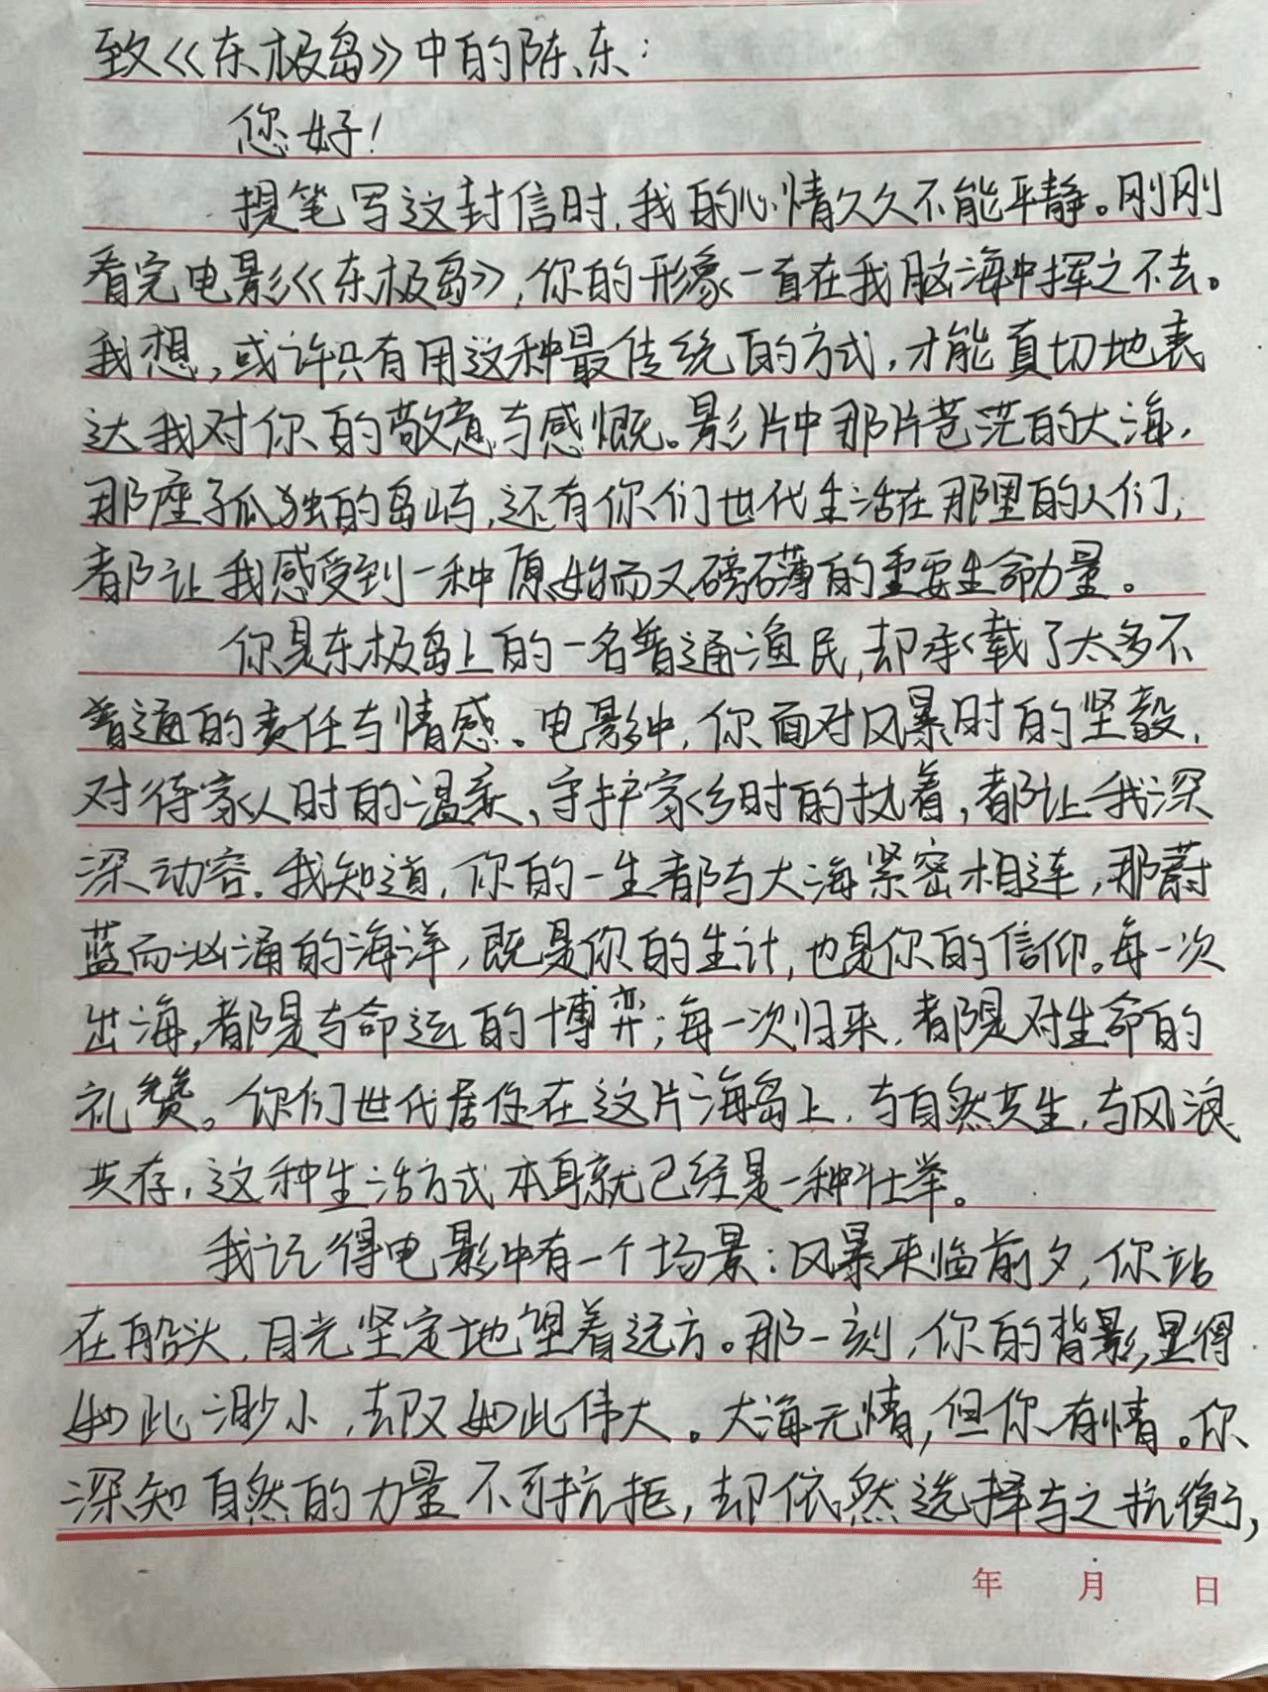 致《东极岛》中的陈东：
您好！
提笔写这封信时，我的心情久久不能平静。刚刚
看完电影《东极岛》，你的形象一直在我脑海中挥之不去。
我想，或许只有用这种最传统的方式，才能真切地表
达我对你的敬意与感慨。影片中那片苍茫的大海，
那座孤独的岛屿，还有你们世代生活在那里的人们，
都让我感受到一种原始而又磅礴的重要生命力量。
你是东极岛上的一名普通渔民，却承载了太多不
普通的责任与情感。电影中，你面对风暴时的坚毅，
对待家人时的温柔、守护家乡时的执着，都让我深
深动容。我知道，你的一生都与大海紧密相连，那蔚
蓝而汹涌的海洋，既是你的生计，也是你的信仰。每一次
出海，都是与命运的博弈；每一次归来，都是对生命的
礼赞。你们世代居住在这片海岛上，与自然共生，与风浪
共存，这种生活方式本身就已经是一种壮举。
我记得电影中有一个场景：风暴来临前夕，你站
在船头，目光坚定地望着远方。那一刻，你的背影显得
如此渺小，却又如此伟大。大海无情，但你有情。你
深知自然的力量不可抗拒，却依然选择与之抗衡，
年 月 日